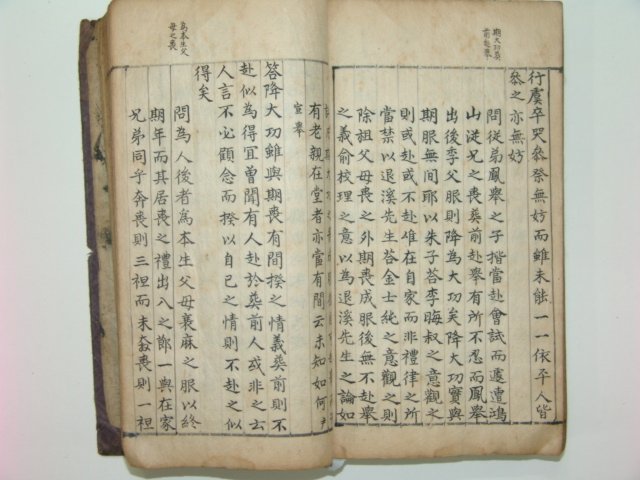 期大功葬
前赴擧
行虞卒哭叅祭無妨而雖未能一一依平人皆
叅之亦無妨
問從弟鳳擧之子揩當赴會試而遽遭鴻
山從兄之喪葬前赴擧有所不忍而鳳擧
出後季父服則降為大功矣降大功實與
期服無間耶以朱子荅李晦叔之意觀之
則或赴或不赴在自家而非禮律之所
當禁以退溪先生荅金士純之意觀之則
除祖父母喪之外期喪成服後無不赴擧
之義俞校理之意以為退溪先生之論如
有老親在堂者亦當有間云未知如何
宜擧
答降大功雖與期喪有間揆之情義葬前則不
赴似為得宜曽聞有人赴於葬前人或非之云
人言不必顧念而揆以自己之情則不赴之似
得矣
為本生父
母之喪
問為人後者為本生父母衰麻之服以終
期年而其居喪之禮出入之節一與在家
兄弟同乎奔喪則三袒而未奔喪則一袒